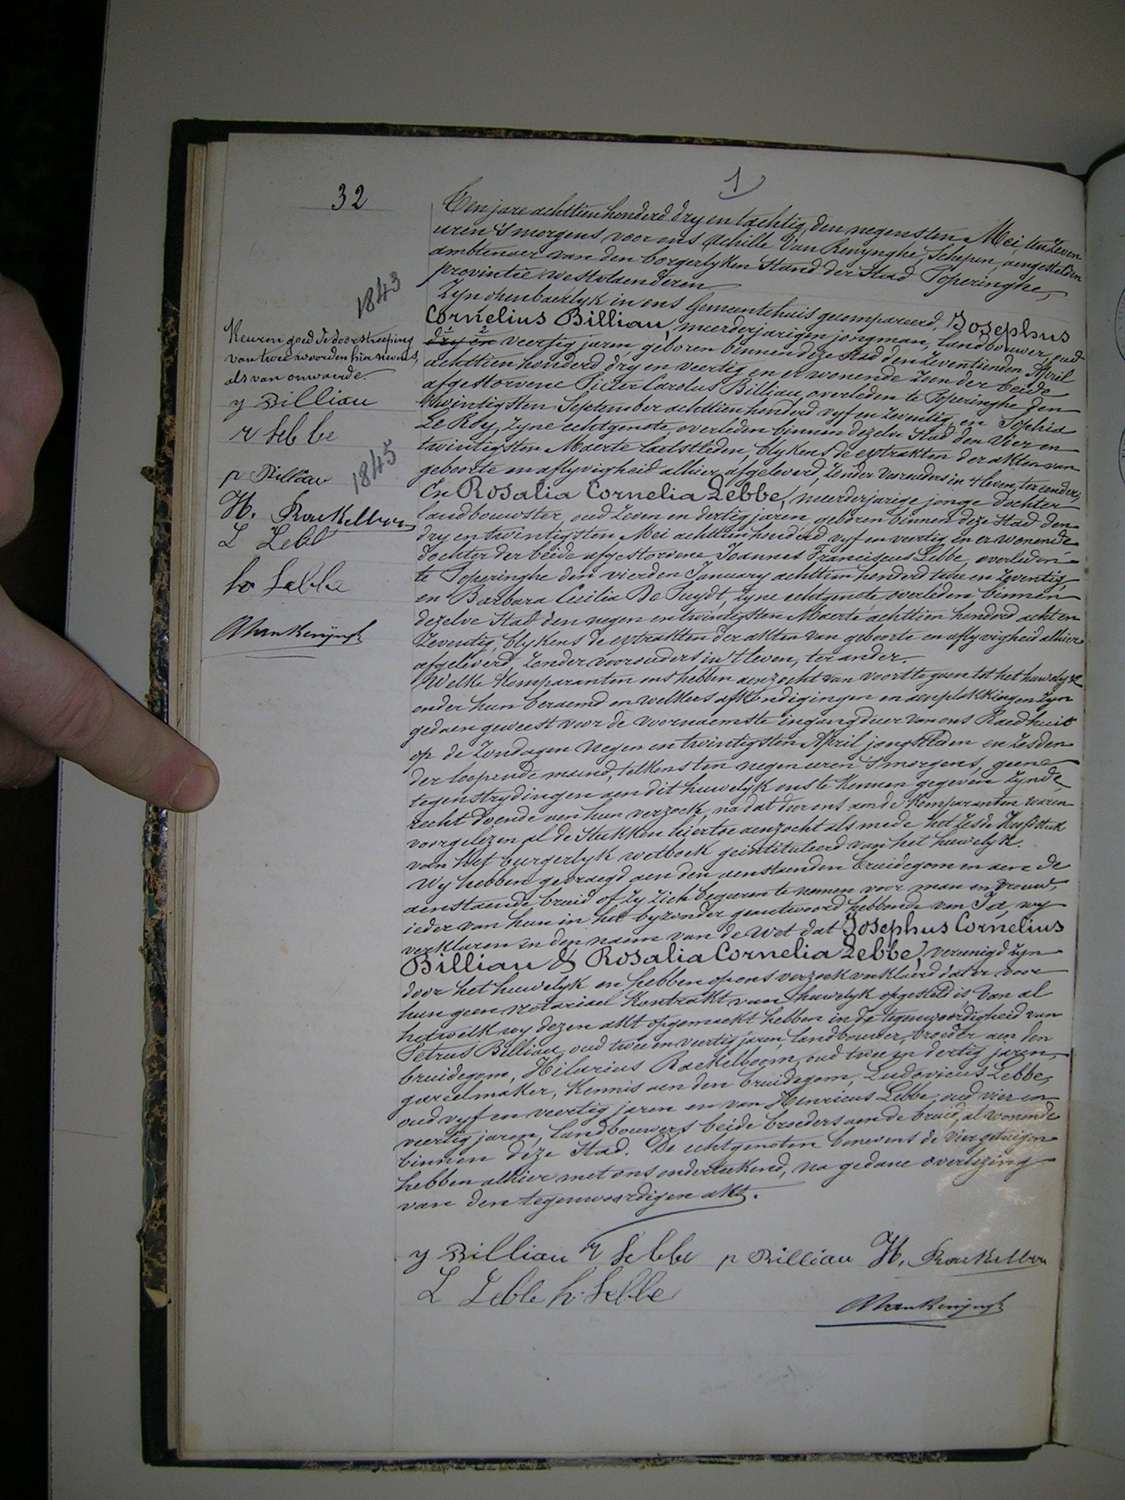 1
32
Ten jare achttien honderd dry en tachtig, den negensten Mei, ten zeven
uren 's morgens, voor ons Achille Van Renynghe, Schepen, aengestelden
ambtenaer van den borgerlyken Stand der Stad Poperinghe,
provintie Westvlaenderen
Zyn openbaerlyk in ons Gemeentehuis gecompareerd, Josephus
Cornelius Billiau, meerderjarigen jongman, Landbouwer, oud
dry en veertig jaren geboren binnen deze Stad den zeventienden April
achttien honderd dry en veertig en er wonende Zoon der beide
afgestorvene Pieter Carolus Billiau, overleden te Poperinghe den
twintigsten September achttien honderd vyf en zeventig, en Sophia
Le Roy, zyne echtgenote, overleden binnen dezelve Stad den vier en
twintigsten Maerte laetstleden, blykens de extrakten der akten van
geboorte en aflyvigheid alhier afgeleverd, zonder voorouders in 't leven, ter eender;
En Rosalia Cornelia Lebbe, meerderjarige jonge dochter
landbouwster, oud zeven en dertig jaren geboren binnen deze Stad den
dry en twintigsten Mei achttien honderd vyf en veertig en er wonende
Dochter der beide afgestorvene Joannes Franciscus Lebbe, overleden
te Poperinghe den vierden January achttien honderd twee en zeventig,
en Barbara Cecilia De Puydt, zyne echtgenote overleden binnen
dezelve Stad den negen en twintigsten Maerte achttien honderd acht en
zeventig, blykens de extrakten der akten van geboorte en aflyvigheid alhier
afgeleverd, zonder voorouders in 't leven, ter ander.
Welke Komparanten ons hebben aenzocht van voort te gaen tot het huwelyk
onder hun beraemd en welkers afkondigingen en aenplakkingen zyn
gedaen geweest voor de voornaemste ingangdeur van ons Raedhuis
op de Zondagen negen en twintigsten April jongstleden en zesden
der loopende maend, telkens ten negen uren 's morgens, geene
tegenstrydingen aen dit huwelyk ons te kennen gegeven zynde,
recht doende aen hun verzoek, na dat door ons aen de Komparanten waren
voorgelezen al de Stukken hiertoe aenzocht als mede het zesde Hoofdstuk
van het burgerlyk wetboek geintituleerd van het huwelyk.
Wy hebben gevraegd aen den aenstaenden bruidegom en aen de
aenstaende bruid of zy zich begeeren te nemen voor man en vrouw,
ieder van hun in het byzonder geantwoord hebbende van Ja, wy
verklaren in den naem van de Wet dat Josephus Cornelius
Billiau & Rosalia Cornelia Lebbe, vereenigd zyn
door het huwelyk en hebben op ons verzoek verklaerd dat er voor
hun geen notariael Kontrakt van huwelyk opgesteld is Van al
hetwelk wy dezen akt opgemaekt hebben in de tegenwoordigheid van
Petrus Billiau, oud twee en veertig jaren, landbouwer, broeder aen den
bruidegom, Hilarius Raekelboom, oud twee en dertig jaren,
gareelmaker, Kennis aen den bruidegom, Ludovicus Lebbe,
oud vyf en veertig jaren en van Henricus Lebbe, oud vier en
veertig jaren, landbouwers beide broeders aen de bruid, al wonende
binnen deze Stad. De echtgenoten benevens de vier getuigen
hebben alhier met ons onderteekend, na gedane overlezing
van den tegenwoordigen akt.
y Billiau r Lebbe p Billiau H. Raekelboom
L Lebbe h. Lebbe
AVanRenynghe
1843
Keuren goed de doorstreeping
van twee woorden hiernevens,
als van onwaerde.
y Billiau
r Lebbe
1845
p Billiau
H. Raekelboom
L Lebbe
h Lebbe
AVanRenynghe